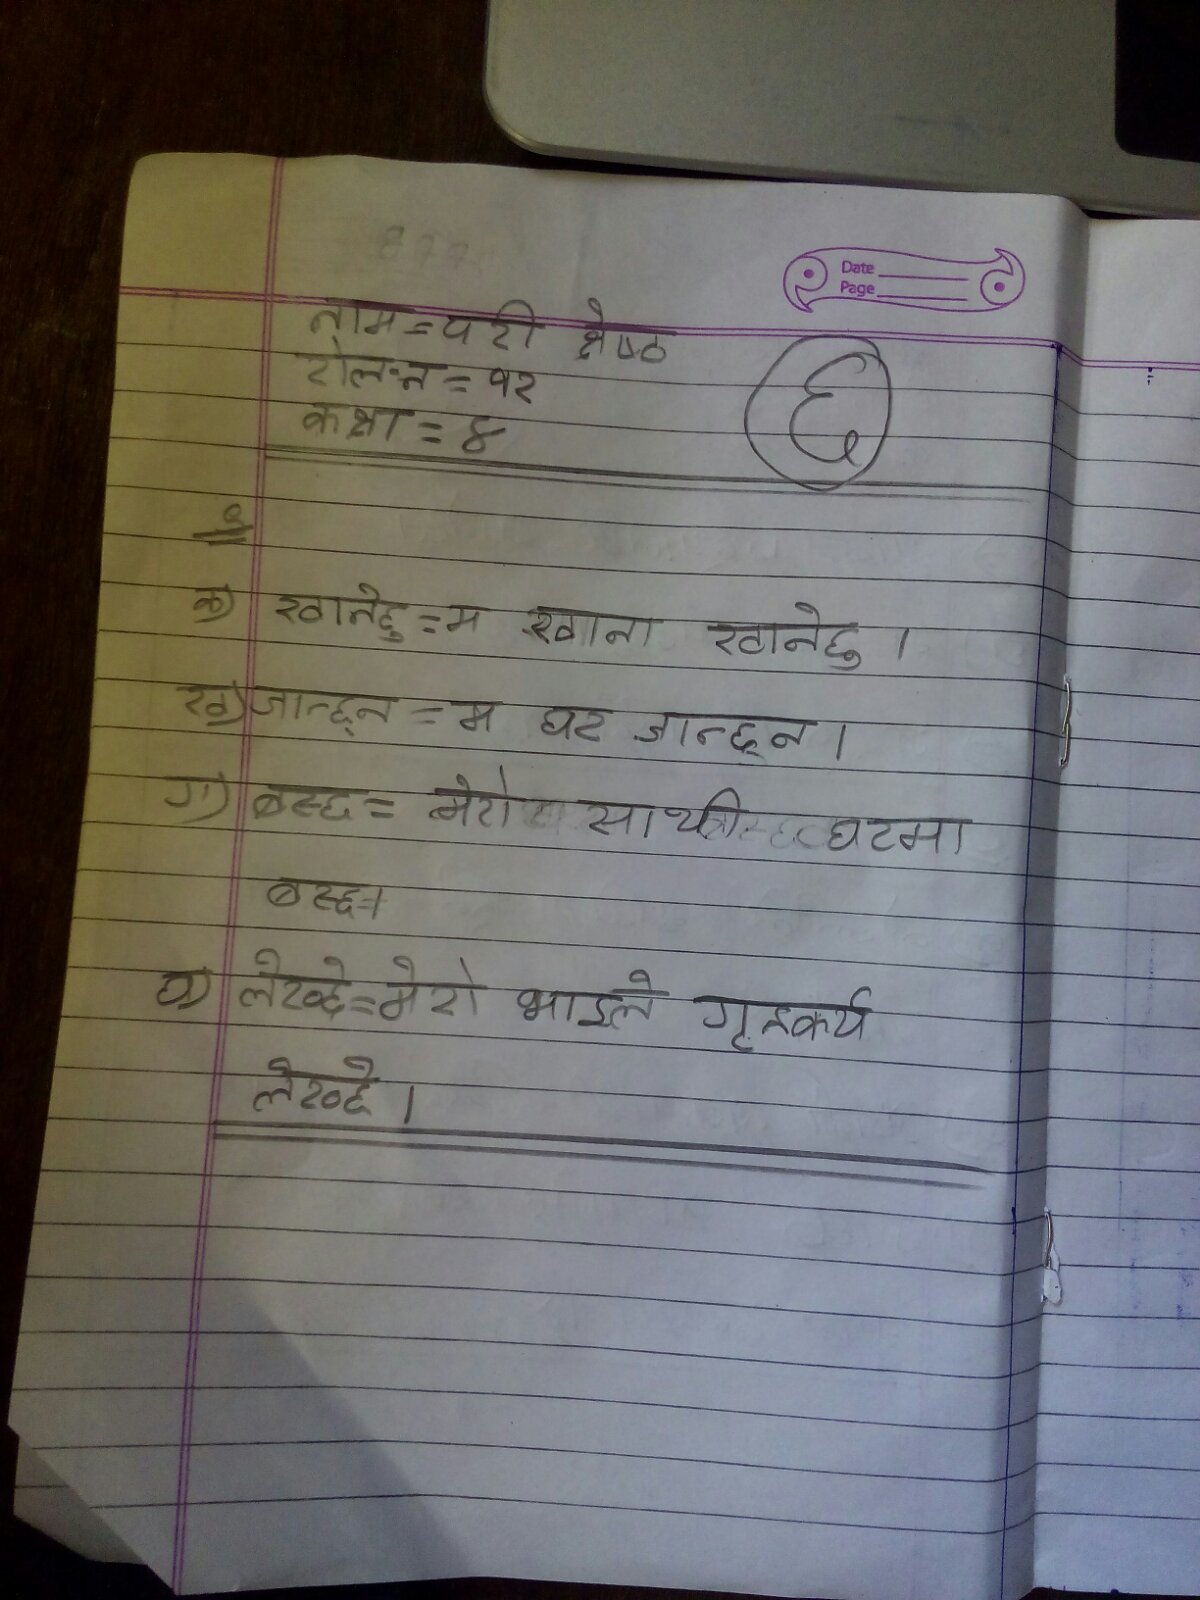 Date
Page
नाम = परी श्रेष्ठ
रोल.न = १२
कक्षा = ४
६
१
क) खानेछु = म खाना खानेछु ।
ख) जान्छन = म घर जान्छन ।
ग) बस्छ = मेरो साथी घरमा
बस्छ ।
घ) लेख्छे = मेरो भाइले गृहकर्य
लेख्छे ।